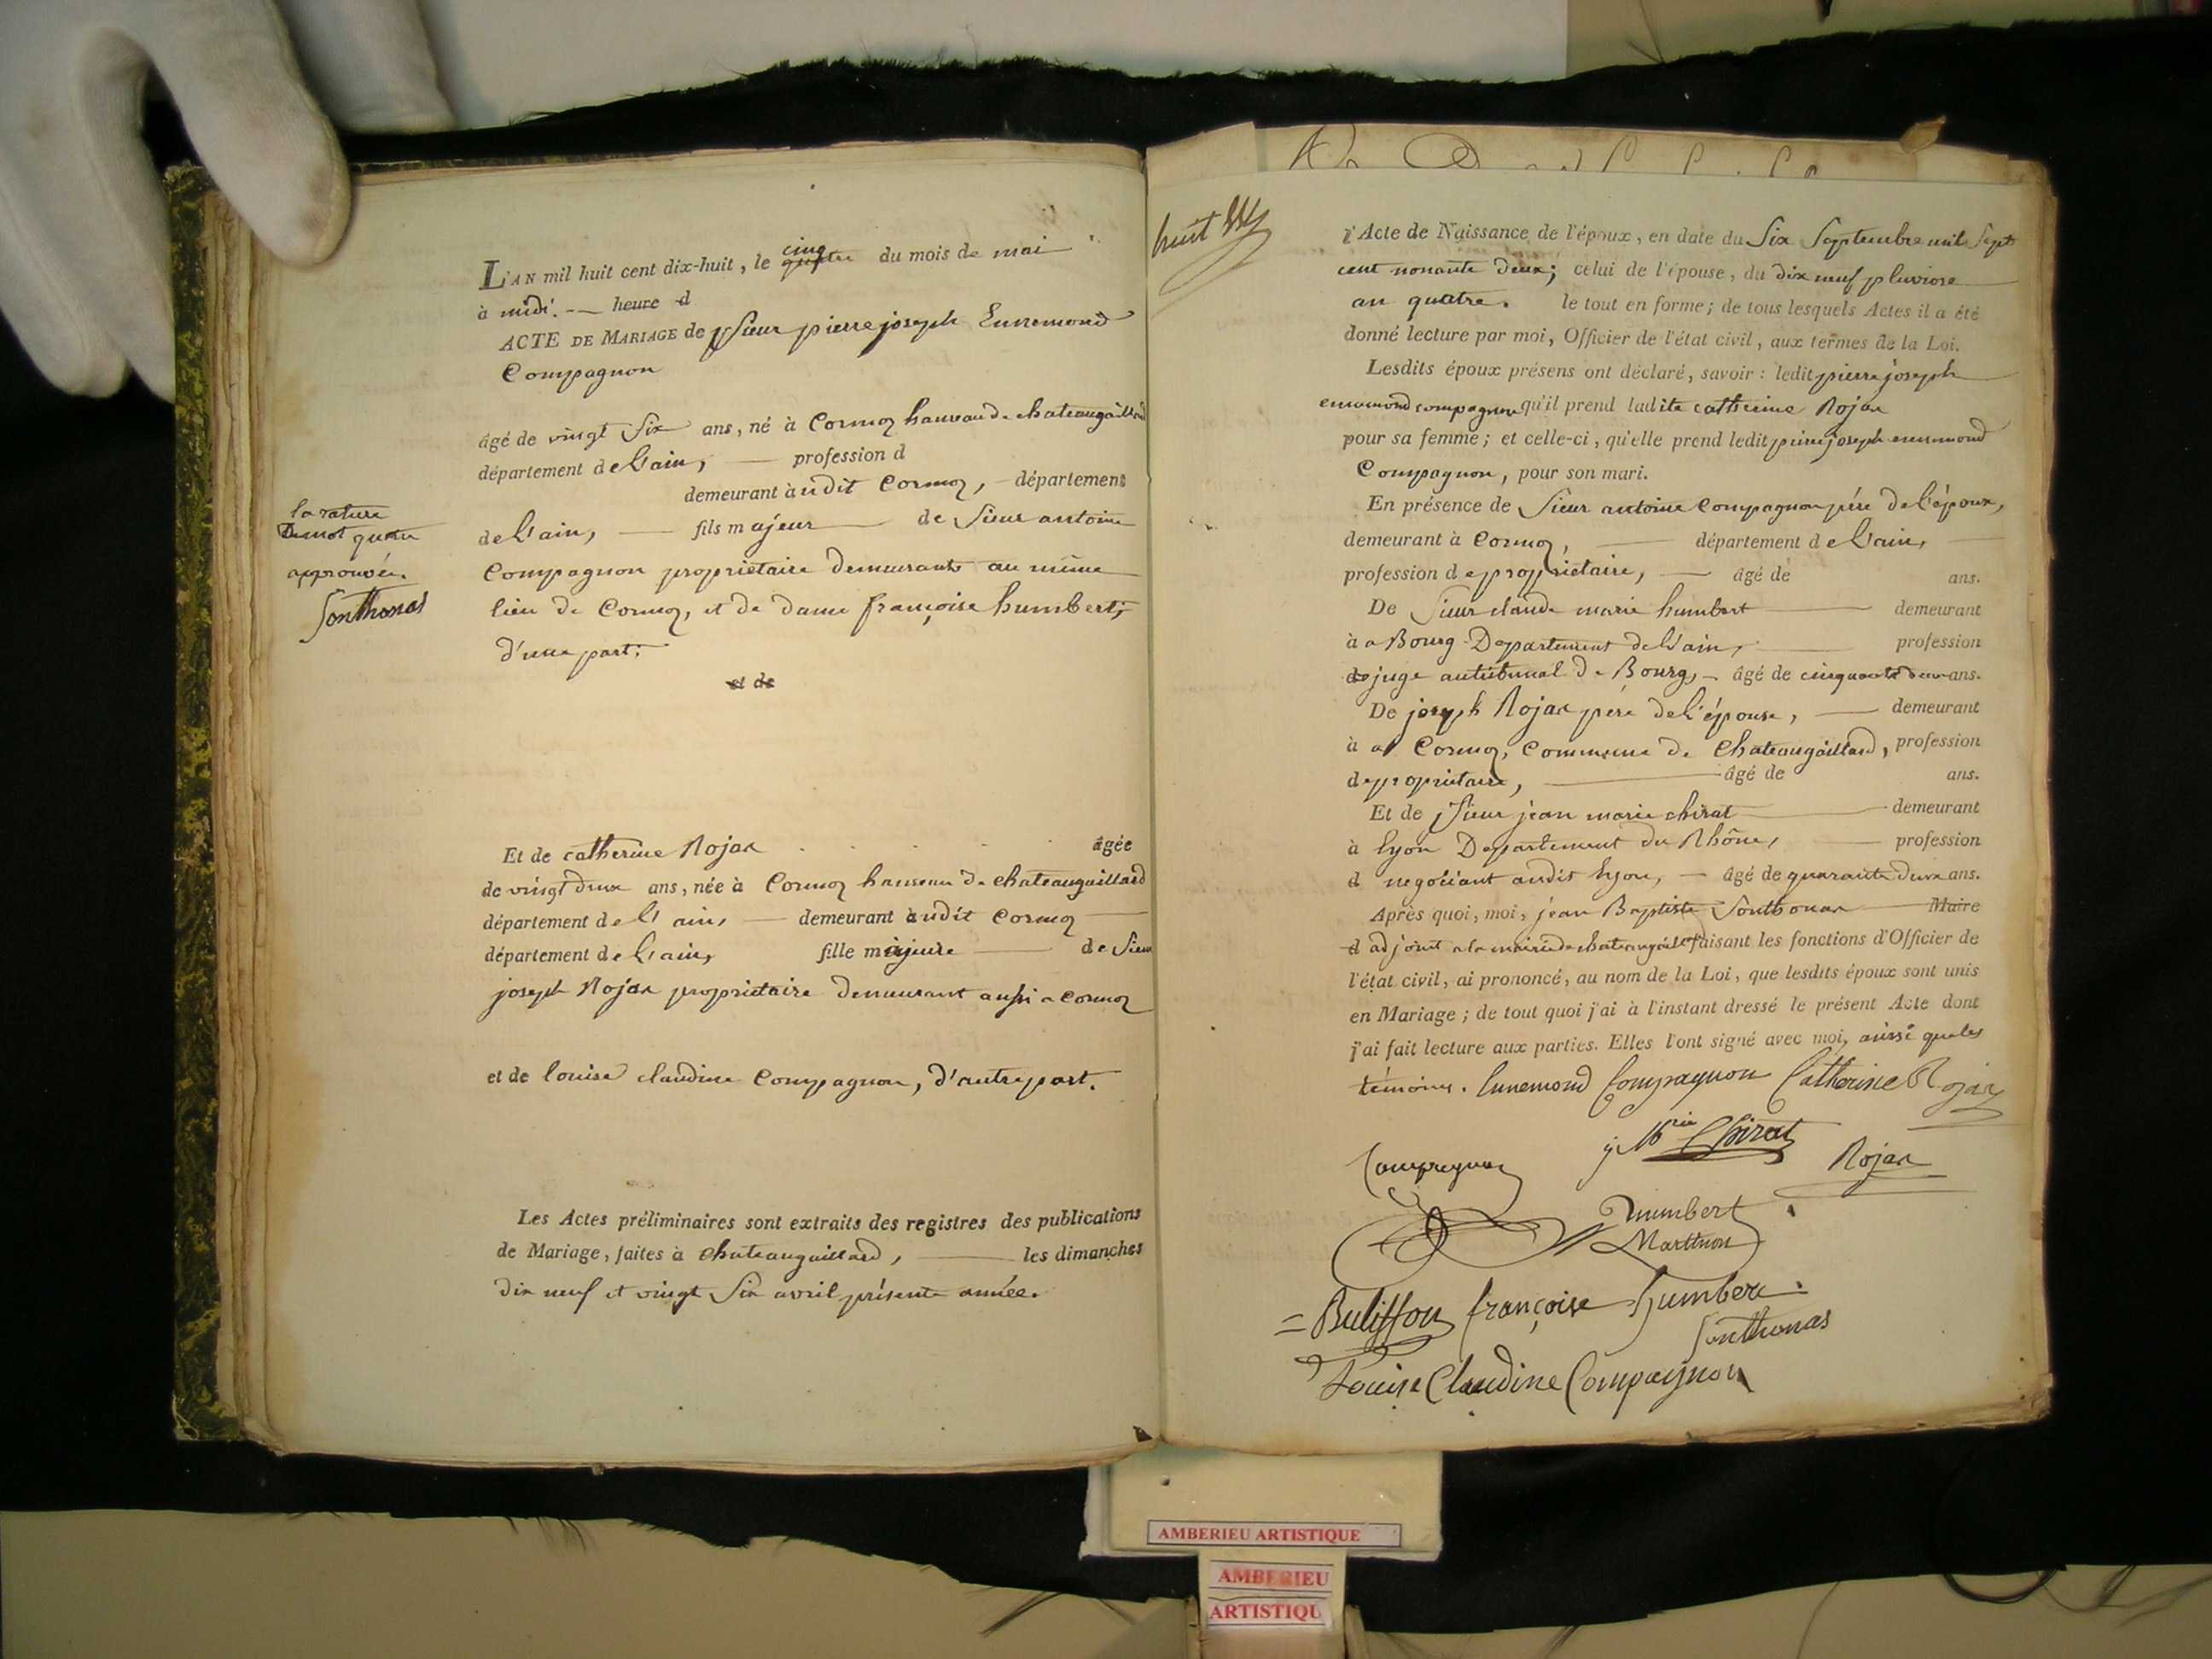 L'AN mil huit cent dix-huit, le cinq quatre du mois de mai
à midi. heure d
ACTE DE MARIAGE de Sieur pierre joseph Ennemond
Compagnon
âgé de vingt Six ans, né à Cormoz hameau de chateaugaillard
département de L'ain, profession d
demeurant audit Cormoz, département
la rature
du mot quatre
approuvée.
Sonthonas
de L'ain, fils majeur de Sieur antoine
Compagnon propriétaire demeurants au même
lieu de Cormoz, et de dame françoise humbert,
d'une part.
et de
Et de catherine Rojar âgée
de vingt deux ans, née à Cormoz hameau de chateaugaillard
département de L'ain, demeurant audit Cormoz
département de L'ain, fille majeure de Sieur
joseph Rojar propriétaire demeurant aussi a cormoz
et de louise claudine Compagnon, d'autre part.
Les Actes préliminaires sont extraits des registres des publications
de Mariage, faites à chateaugaillard, les dimanches
dix neuf et vingt Six avril présente année.
huit
l'Acte de Naissance de l'époux, en date du Six Septembre mil Sept
cent nonante deux; celui de l'épouse, du dix neuf pluviose
an quatre. le tout en forme; de tous lesquels Actes il a été
donné lecture par moi, Officier de l'état civil, aux termes de la Loi.
Lesdits époux présens ont déclaré, savoir: ledit pierre joseph
ennemond compagnon qu'il prend ladite catherine Rojar
pour sa femme; et celle-ci, qu'elle prend ledit pierre joseph ennemond
Compagnon, pour son mari.
En présence de Sieur antoine Compagnon père de l'époux,
demeurant à Cormoz, département de L'ain,
profession de propriétaire, âgé de ans.
De Sieur claude marie humbert demeurant
à a Bourg Departement de L'ain, profession
de juge au tribunal de Bourg, âgé de cinquante deux ans.
De joseph Rojar père de l'épouse, demeurant
à a Cormoz, Commune de Chateaugaillard, profession
de propriétaire, âgé de ans.
Et de Sieur jean marie chirat demeurant
à Lyon Departement du Rhône, profession
d negotiant audit Lyon, âgé de quarante deux ans.
Après quoi, moi, jean Baptiste Sonthonas Maire
d adjoint a la mairie de chateaugaillard faisant les fonctions d'Officier de
l'état civil, ai prononcé, au nom de la Loi, que lesdits époux sont unis
en Mariage; de tout quoi j'ai à l'instant dressé le présent Acte dont
j'ai fait lecture aux parties. Elles l'ont signé avec moi, ainsi que les
témoins. Ennemond Compagnon Catherine Rojar
j Mrie Chirat
Compagnon
Rojar
humbert
françoise humbert
Sonthonas
Louise Claudine Compagnon
AMBERIEU ARTISTIQUE
AMBERIEU
ARTISTIQU